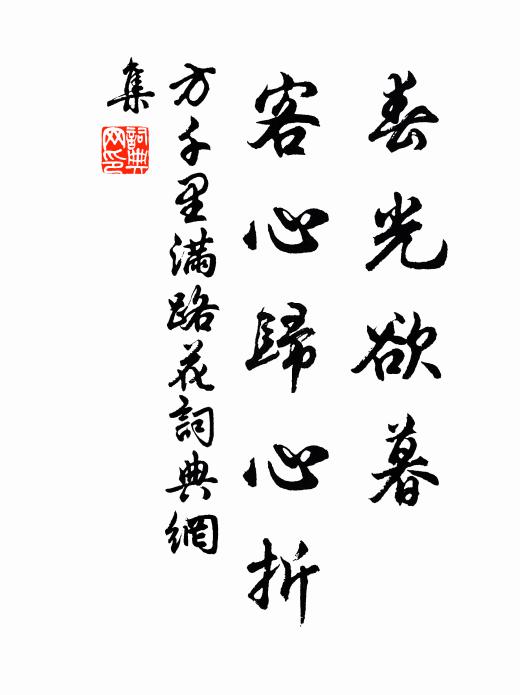 春光欲暮
客心歸心折
方千里滿路花詞典網
集
詞典
网印